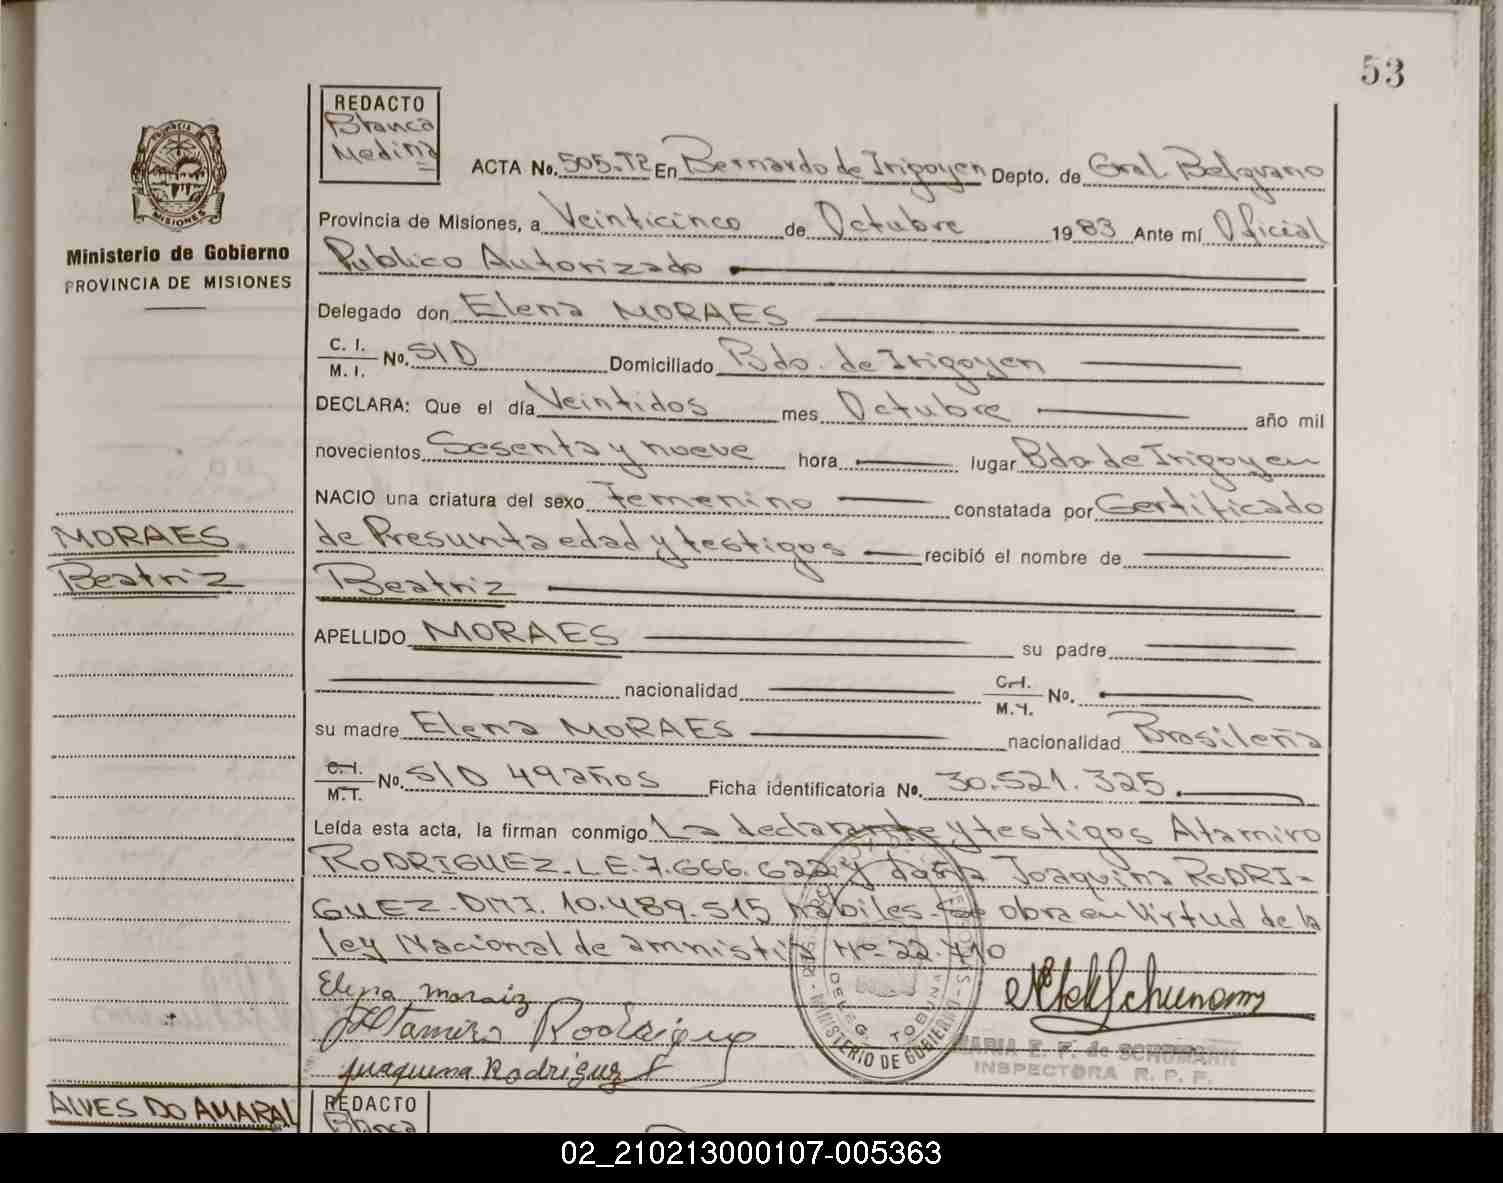 53
REDACTO
Blanca
Medina
PROVINCIA DE
MISIONES
Ministerio de Gobierno
PROVINCIA DE MISIONES
ACTA No. 505.T2 En Bernardo de Irigoyen Depto. de Gral. Belgrano
Provincia de Misiones, a Veinticinco de Octubre 1983 Ante mí Oficial
Publico Autorizado
Delegado don Elena MORAES
C. I.
M. I. No. S/D Domiciliado Bdo. de Irigoyen
DECLARA: Que el día Veintidos mes Octubre año mil
novecientos Sesenta y nueve hora lugar Bdo. de Irigoyen
NACIO una criatura del sexo Femenino constatada por Certificado
MORAES.
de Presunta edad y testigos recibió el nombre de
Beatriz
Beatriz
APELLIDO MORAES su padre
nacionalidad C.I. M.I. No.
su madre Elena MORAES nacionalidad Brasileña
C.I. M.I. No. S/D 49 años Ficha identificatoria No. 30.521.325.
Leída esta acta, la firman conmigo La declarante y testigos Atamiro
RODRIGUEZ. L.E. 7.666.622 y doña Joaquina RODRI-
GUEZ-DNI. 10.489.515 habiles. Se obra en Virtud de la
ley Nacional de amnistia Nº 22.410
Elena moraiz
Altamiro Rodriguez
Juaquina Rodriguez
MINISTERIO DE GOBIERNO
MARIA E. F. de SCHUMANN
INSPECTORA R. P. P.
ALVES DO AMARAL
REDACTO
Blanca
02_210213000107-005363